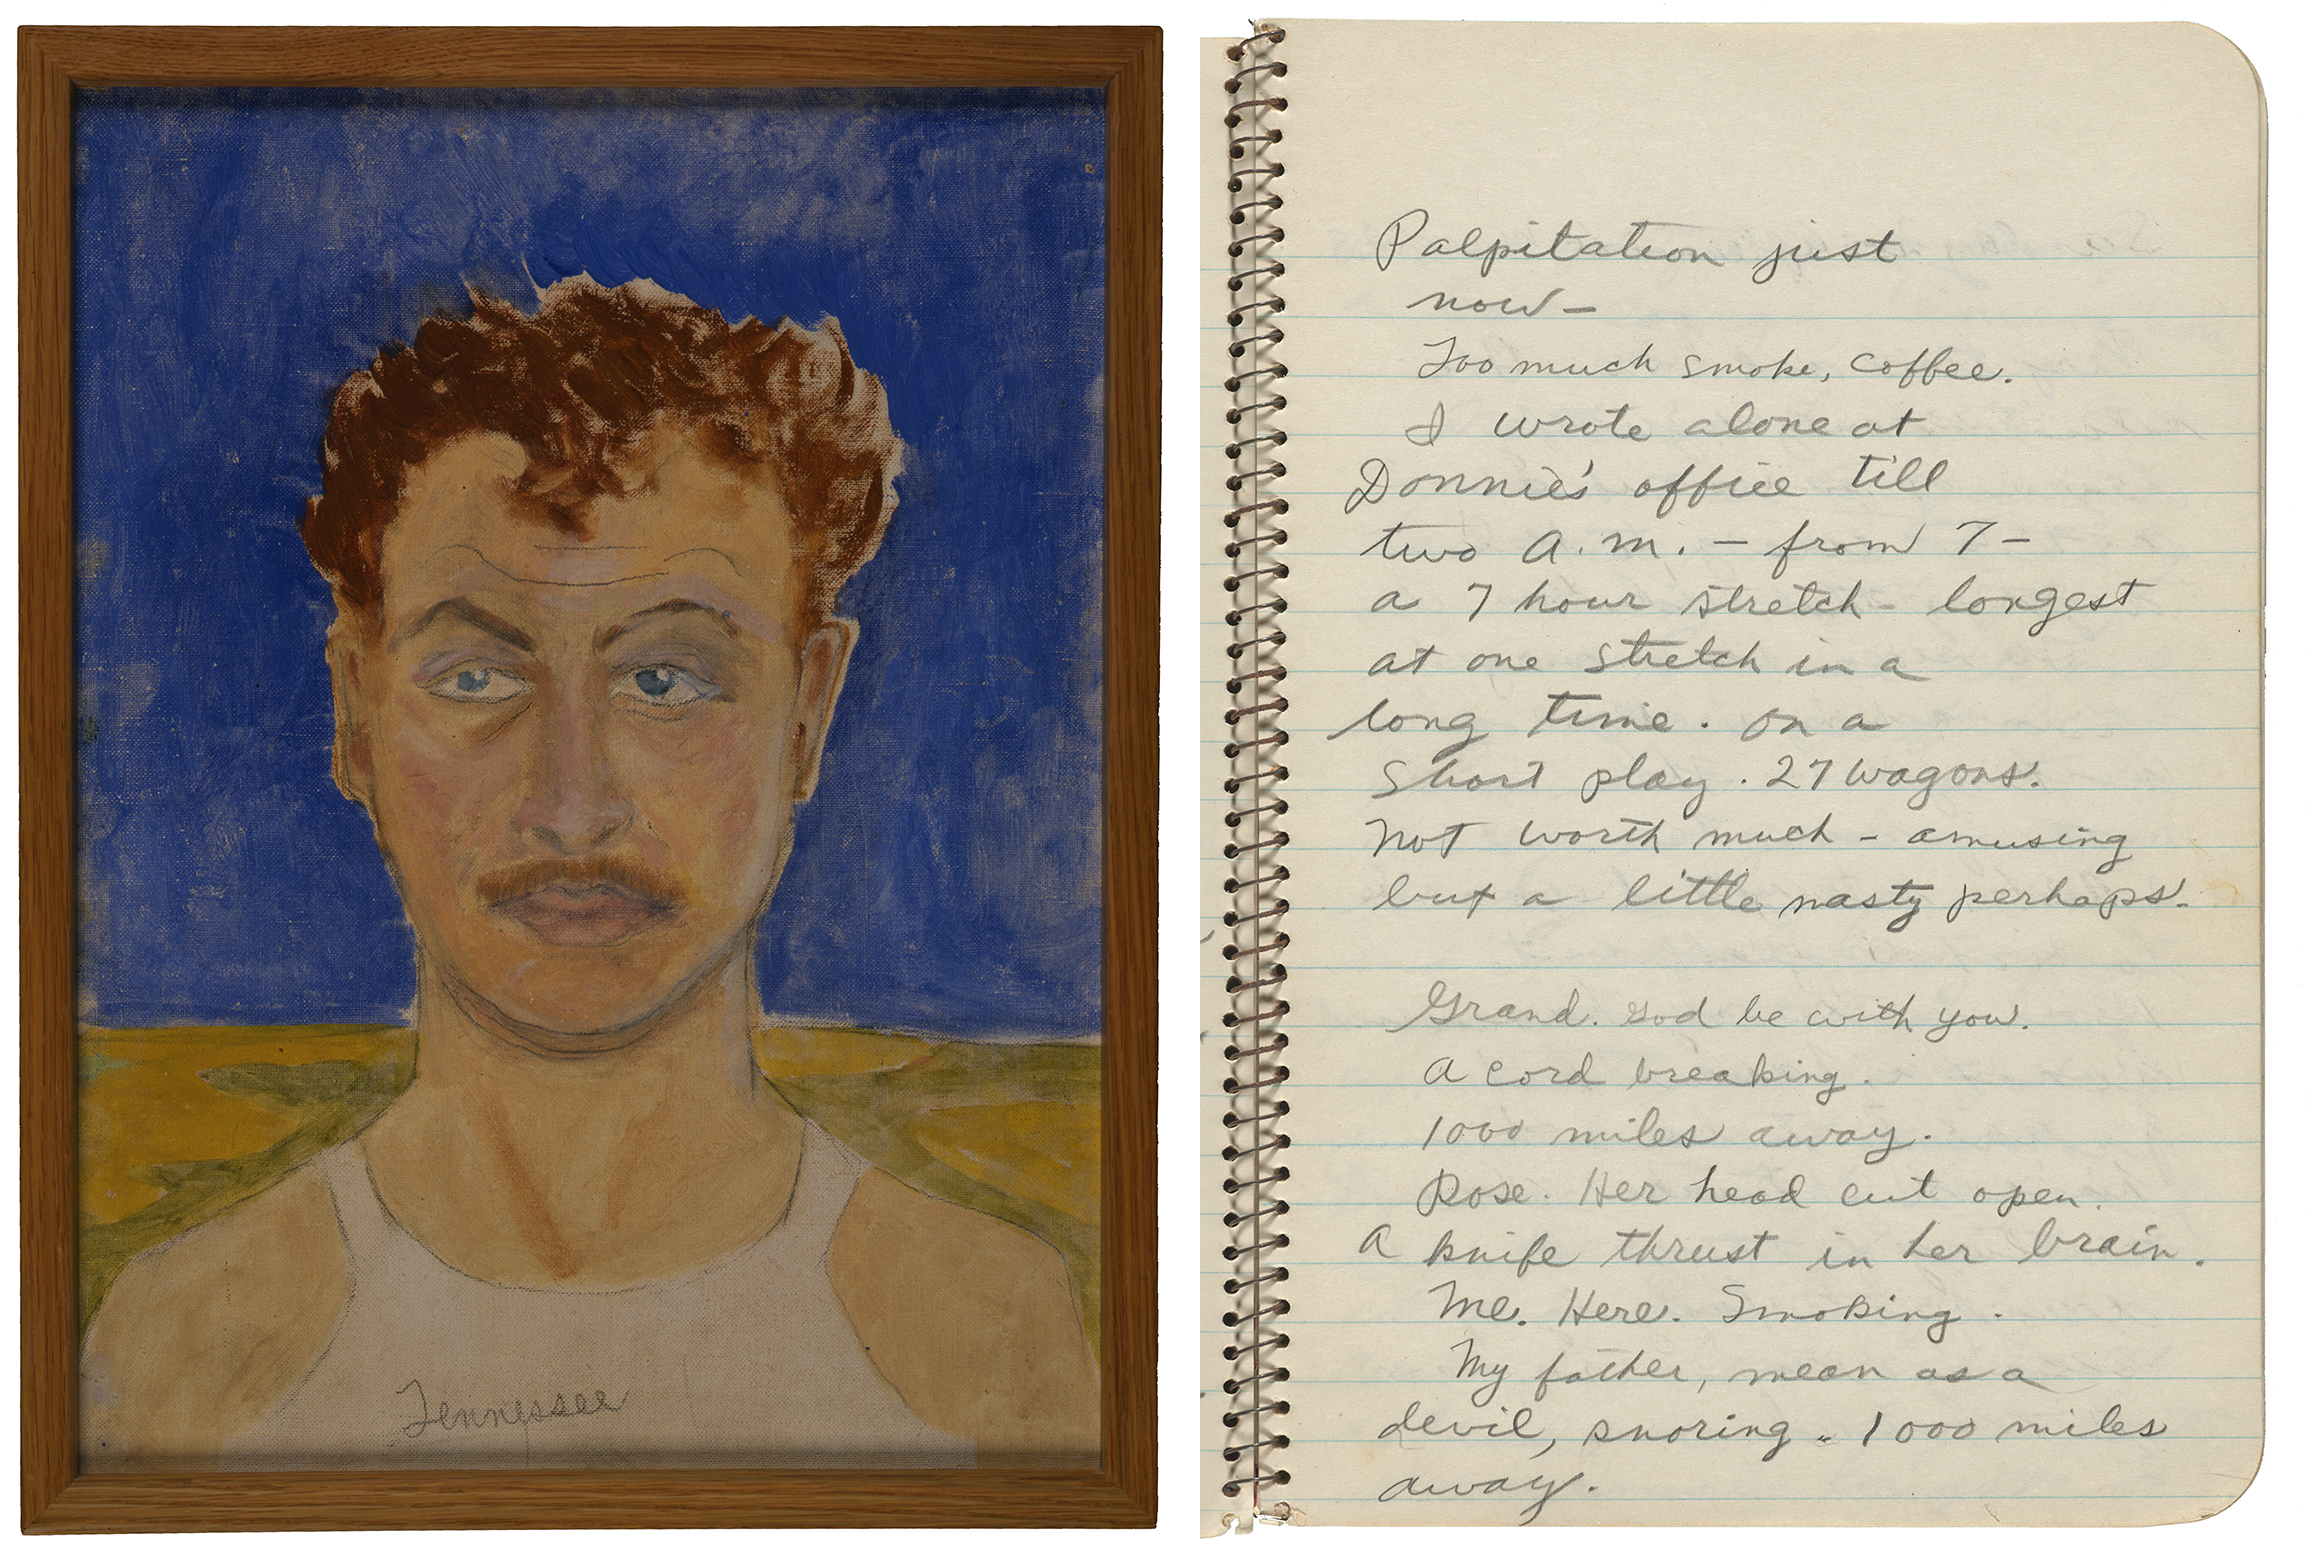 Tennessee
Palpitation just
now –
Too much smoke, coffee.
I wrote alone at
Donnie's office till
two a.m. – from 7 –
a 7 hour stretch – longest
at one stretch in a
long time. On a
short play. 27 wagons.
Not worth much – amusing
but a little nasty perhaps.
Grand. God be with you.
A cord breaking.
1000 miles away.
Rose. Her head cut open.
A knife thrust in her brain.
Me. Here. Smoking.
My father, mean as a
devil, snoring. 1000 miles
away.